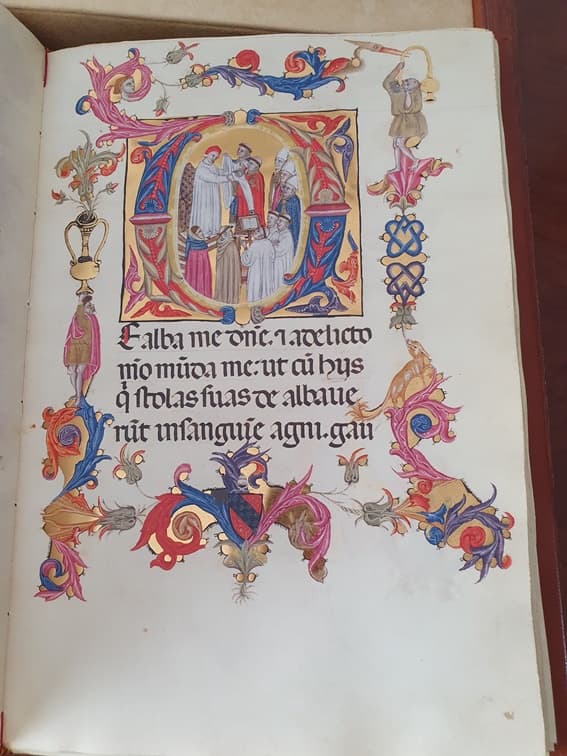 DEalba me dn̄e. ⁊ adelicto
mō mūda me: ut cū hijs
q̄ stolas suas de albaue
rūt insanguīe agni. gau